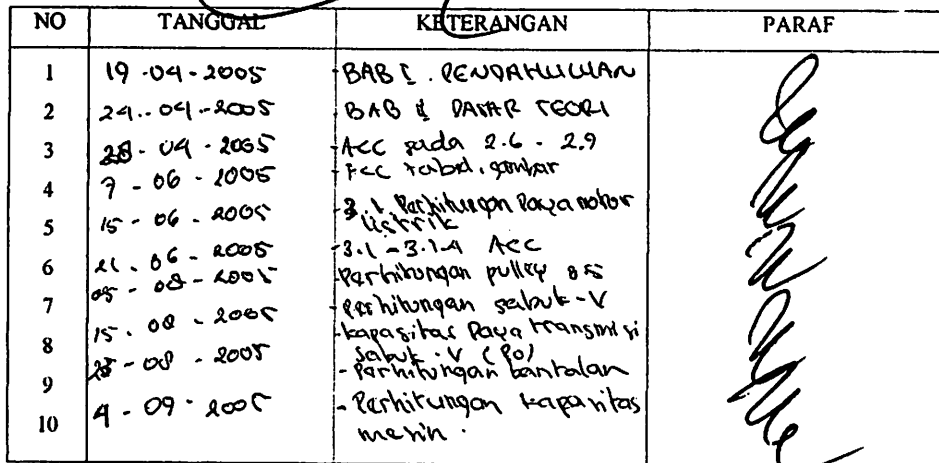 NO TANGGAL KETERANGAN PARAF
1 19-04-2005 -BAB I. PENDAHULUAN
2 24-04-2005 -BAB II DASAR TEORI
3 28-04-2005 -Acc pada 2.6 - 2.9
4 7-06-2005 -Acc tabel, gambar
5 15-06-2005 -3.1 Perhitungan Daya motor
listrik
6 21-06-2005 -3.1 - 3.1.4 Acc
05-08-2005 -Perhitungan pulley
7 -Perhitungan sabuk-V
15-08-2005 -kapasitas Daya transmisi
8 sabuk-V (Po)
25-08-2005 -Perhitungan bantalan
9
10 4-09-2005 -Perhitungan kapasitas
mesin.